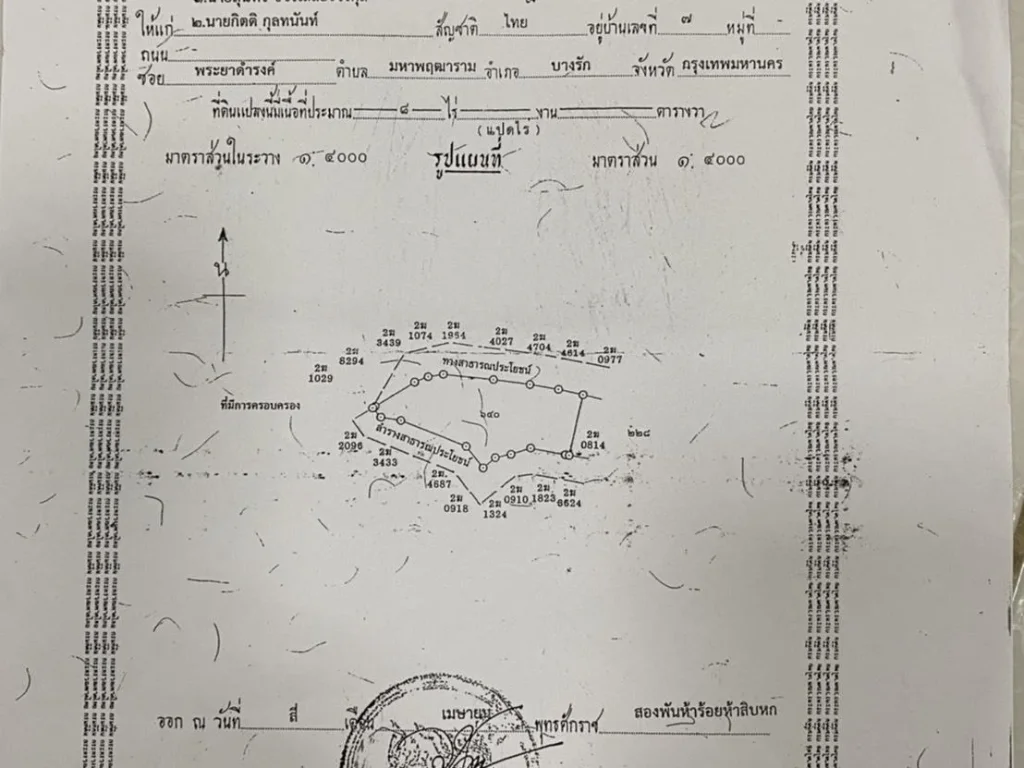 ให้แก่ ๒.นายกิตติ กุลทนันท์ สัญชาติ ไทย อยู่บ้านเลขที่ ๗ หมู่ที่
ถนน
ซอย พระยาดำรงค์ ตำบล มหาพฤฒาราม อำเภอ บางรัก จังหวัด กรุงเทพมหานคร
ที่ดินแปลงนี้มีเนื้อที่ประมาณ ๘ ไร่ งาน ตารางวา
(แปดไร่)
มาตราส่วนในระวาง ๑:๔๐๐๐ รูปแผนที่ มาตราส่วน ๑:๔๐๐๐
น
2ม 3439
2ม 1074
2ม 1954
2ม 4027
2ม 4704
2ม 4614
2ม 0977
2ม 8294
2ม 1029
ทางสาธารณประโยชน์
ที่มีการครอบครอง
๖๔๐
ลำรางสาธารณประโยชน์
2ม 0814
๒๒๘
2ม 2096
2ม 3433
2ม 4687
2ม 0918
2ม 1324
2ม 0910
2ม 1823
2ม 6624
ออก ณ วันที่ สี่ เดือน เมษายน พุทธศักราช สองพันห้าร้อยห้าสิบหก